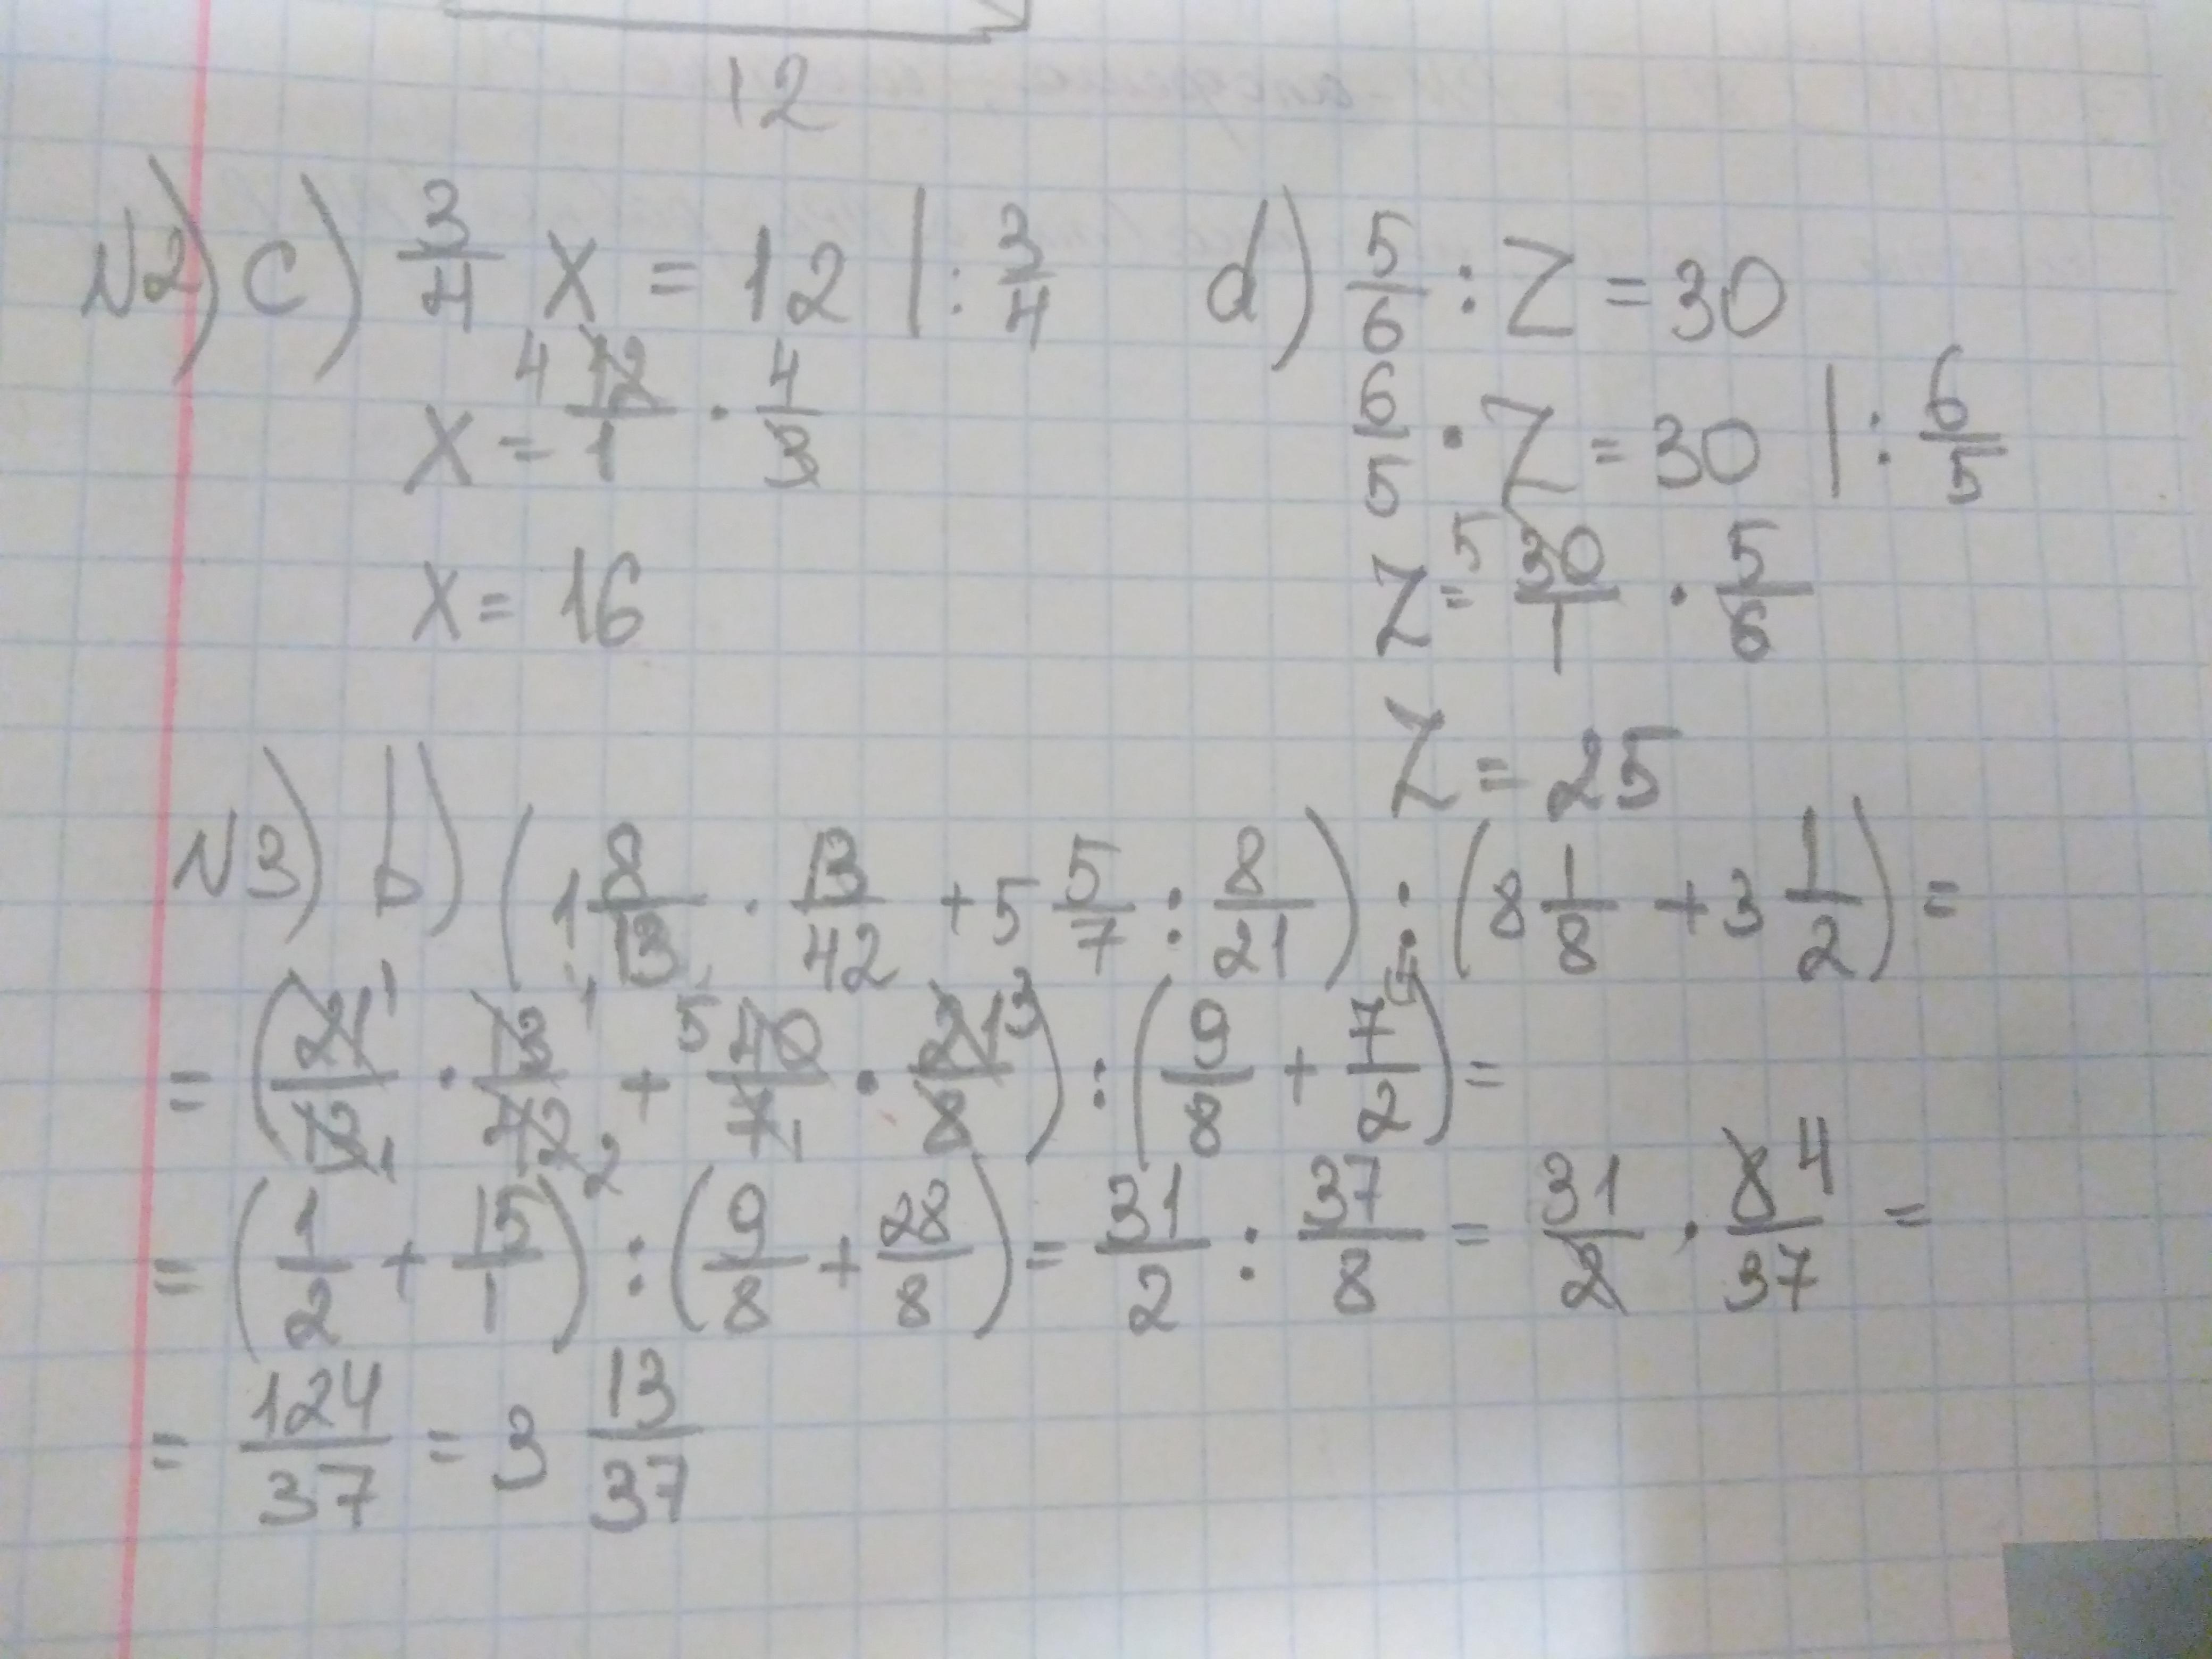 12
N2) c) 3/4 x = 12 | : 3/4
x = 4 12/1 · 4/3
x = 16
d) 5/6 : Z = 30
6/5 · Z = 30 | : 6/5
Z = 5 30/1 · 5/6
Z = 25
N3) b) (1 8/13 · 13/42 + 5 5/7 : 8/21) : (8 1/8 + 3 1/2) =
= (21 1/13 1 · 13 1/42 2 + 5 40/7 1 · 21 3/8) : (9/8 + 7 (4/2) =
= (1/2 + 15/1) : (9/8 + 28/8) = 31/2 : 37/8 = 31/2 · 8 4/37 =
= 124/37 = 3 13/37